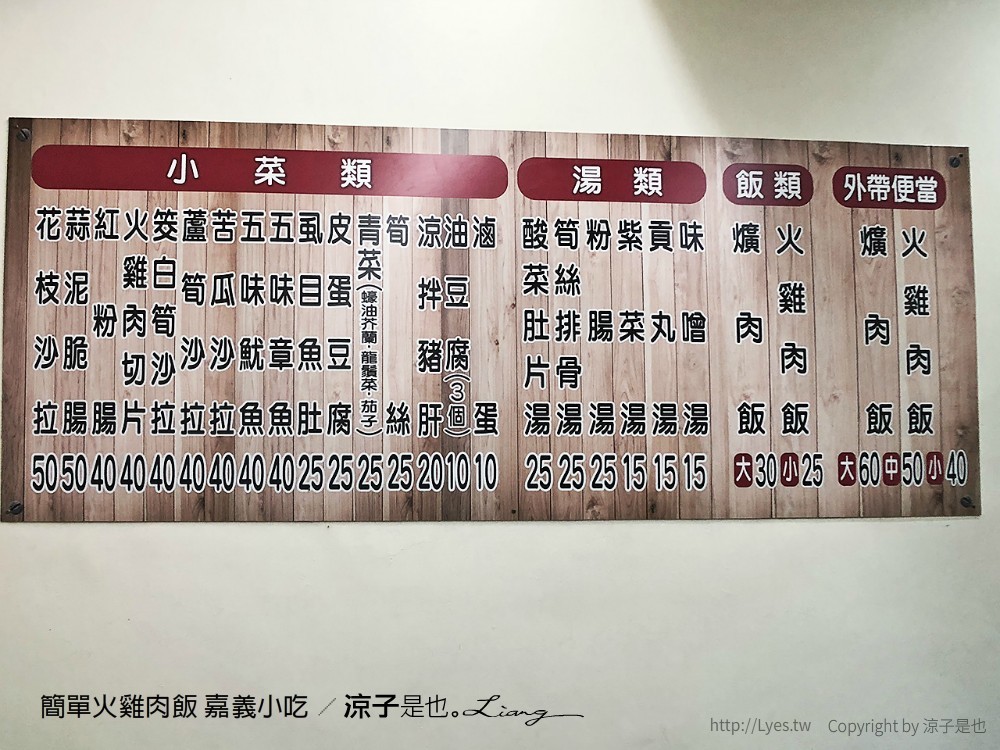 小菜類
花枝沙拉 50
蒜泥脆腸 50
紅粉腸 40
火雞肉切片 40
筊白筍沙拉 40
蘆筍沙拉 40
苦瓜沙拉 40
五味魷魚 40
五味章魚 40
虱目魚肚 25
皮蛋豆腐 25
青菜(蠔油芥蘭·龍鬚菜·茄子) 25
筍絲 25
涼拌豬肝 20
油豆腐(3個) 10
滷蛋 10
湯類
酸菜肚片湯 25
筍絲排骨湯 25
粉腸湯 25
紫菜湯 15
貢丸湯 15
味噌湯 15
飯類
爌肉飯
火雞肉飯
大30 小25
外帶便當
爌肉飯
火雞肉飯
大60 中50 小40
簡單火雞肉飯 嘉義小吃 ／ 涼子是也。Liang
http://Lyes.tw Copyright by 涼子是也